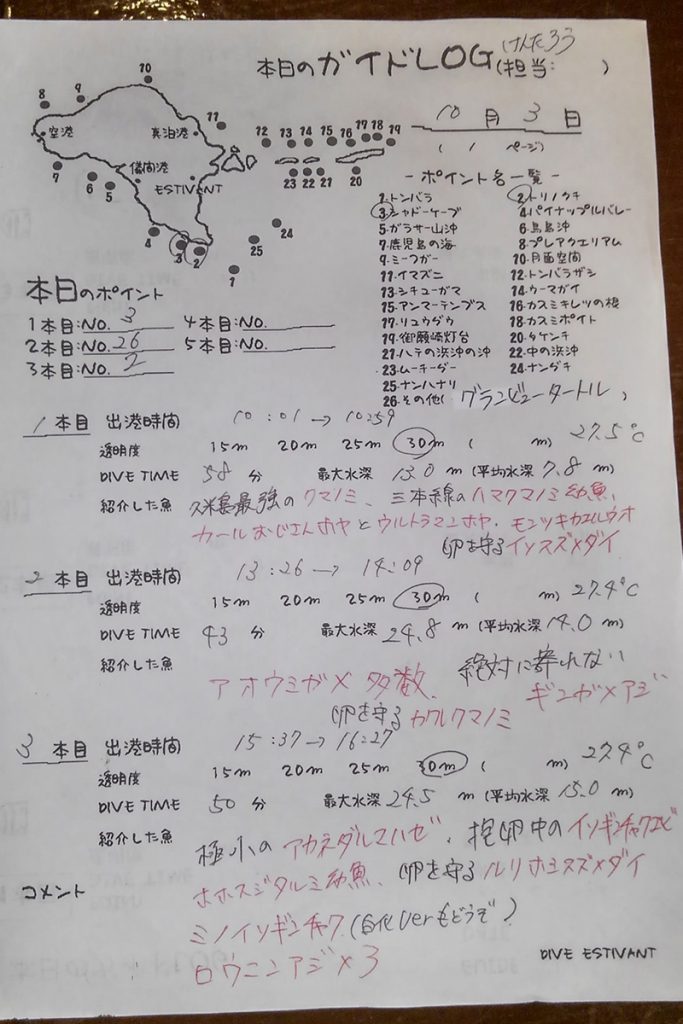 けんた3う
本日のガイドLOG(担当: )
10 月 3 日
( 1 ページ)
10
8
9
空港
真泊港
11
12 13 14 15 16 17 18 19
23 22 21 20
7
6
5
儀間港
ESTIVANT
4
3
2
24
25
1
-ポイント名一覧-
1.トンバラ 2.トリノクチ
3.シャドーケーブ 4.パイナップルバレー
5.ガラサー山沖 6.鳥島沖
7.鹿児島の海 8.プレアクエリアム
9.ミーフガー 10.月面空間
11.イマズニ 12.トンバラザシ
13.シチューガマ 14.ウーマガイ
15.アンマーテンブス 16.カスミキレツの根
17.リュウグウ 18.カスミポイト
19.御願崎灯台 20.タケンチ
21.ハテの浜沖の沖 22.中の浜沖
23.ムーチーダー 24.ナングチ
25.ナンハナリ
26.その他( グランビュータートル )
本日のポイント
1本目:NO. 3 4本目:NO.
2本目:NO. 26 5本目:NO.
3本目:NO. 2
1 本目 出港時間 10:01→10:59
透明度 15m 20m 25m 30m ( m) 27.5℃
DIVE TIME 58 分 最大水深 13.0 m (平均水深 7.8 m)
紹介した魚 久米島最強のクマノミ、三本線のハマクマノミ幼魚、
カールおじさんホヤとウルトラマンホヤ、モンツキカエルウオ
卵を守るイソスズメダイ
2 本目 出港時間 13:26→14:09
透明度 15m 20m 25m 30m ( m) 27.4℃
DIVE TIME 43 分 最大水深 24.8 m (平均水深 14.0 m)
紹介した魚 絶対に寄れない
アオウミガメ多数、 ギンガメアジ
卵を守るカクレクマノミ
3 本目 出港時間 15:37→16:27
透明度 15m 20m 25m 30m ( m) 27.4℃
DIVE TIME 50 分 最大水深 24.5 m (平均水深 15.0 m)
紹介した魚 極小のアカネダルマハゼ、抱卵中のイソギンチャクエビ
ホホスジタルミ幼魚、卵を守るルリホシスズメダイ
コメント
ミノイソギンチャク(白化verもどうぞ)
ロウニンアジ×3
DIVE ESTIVANT